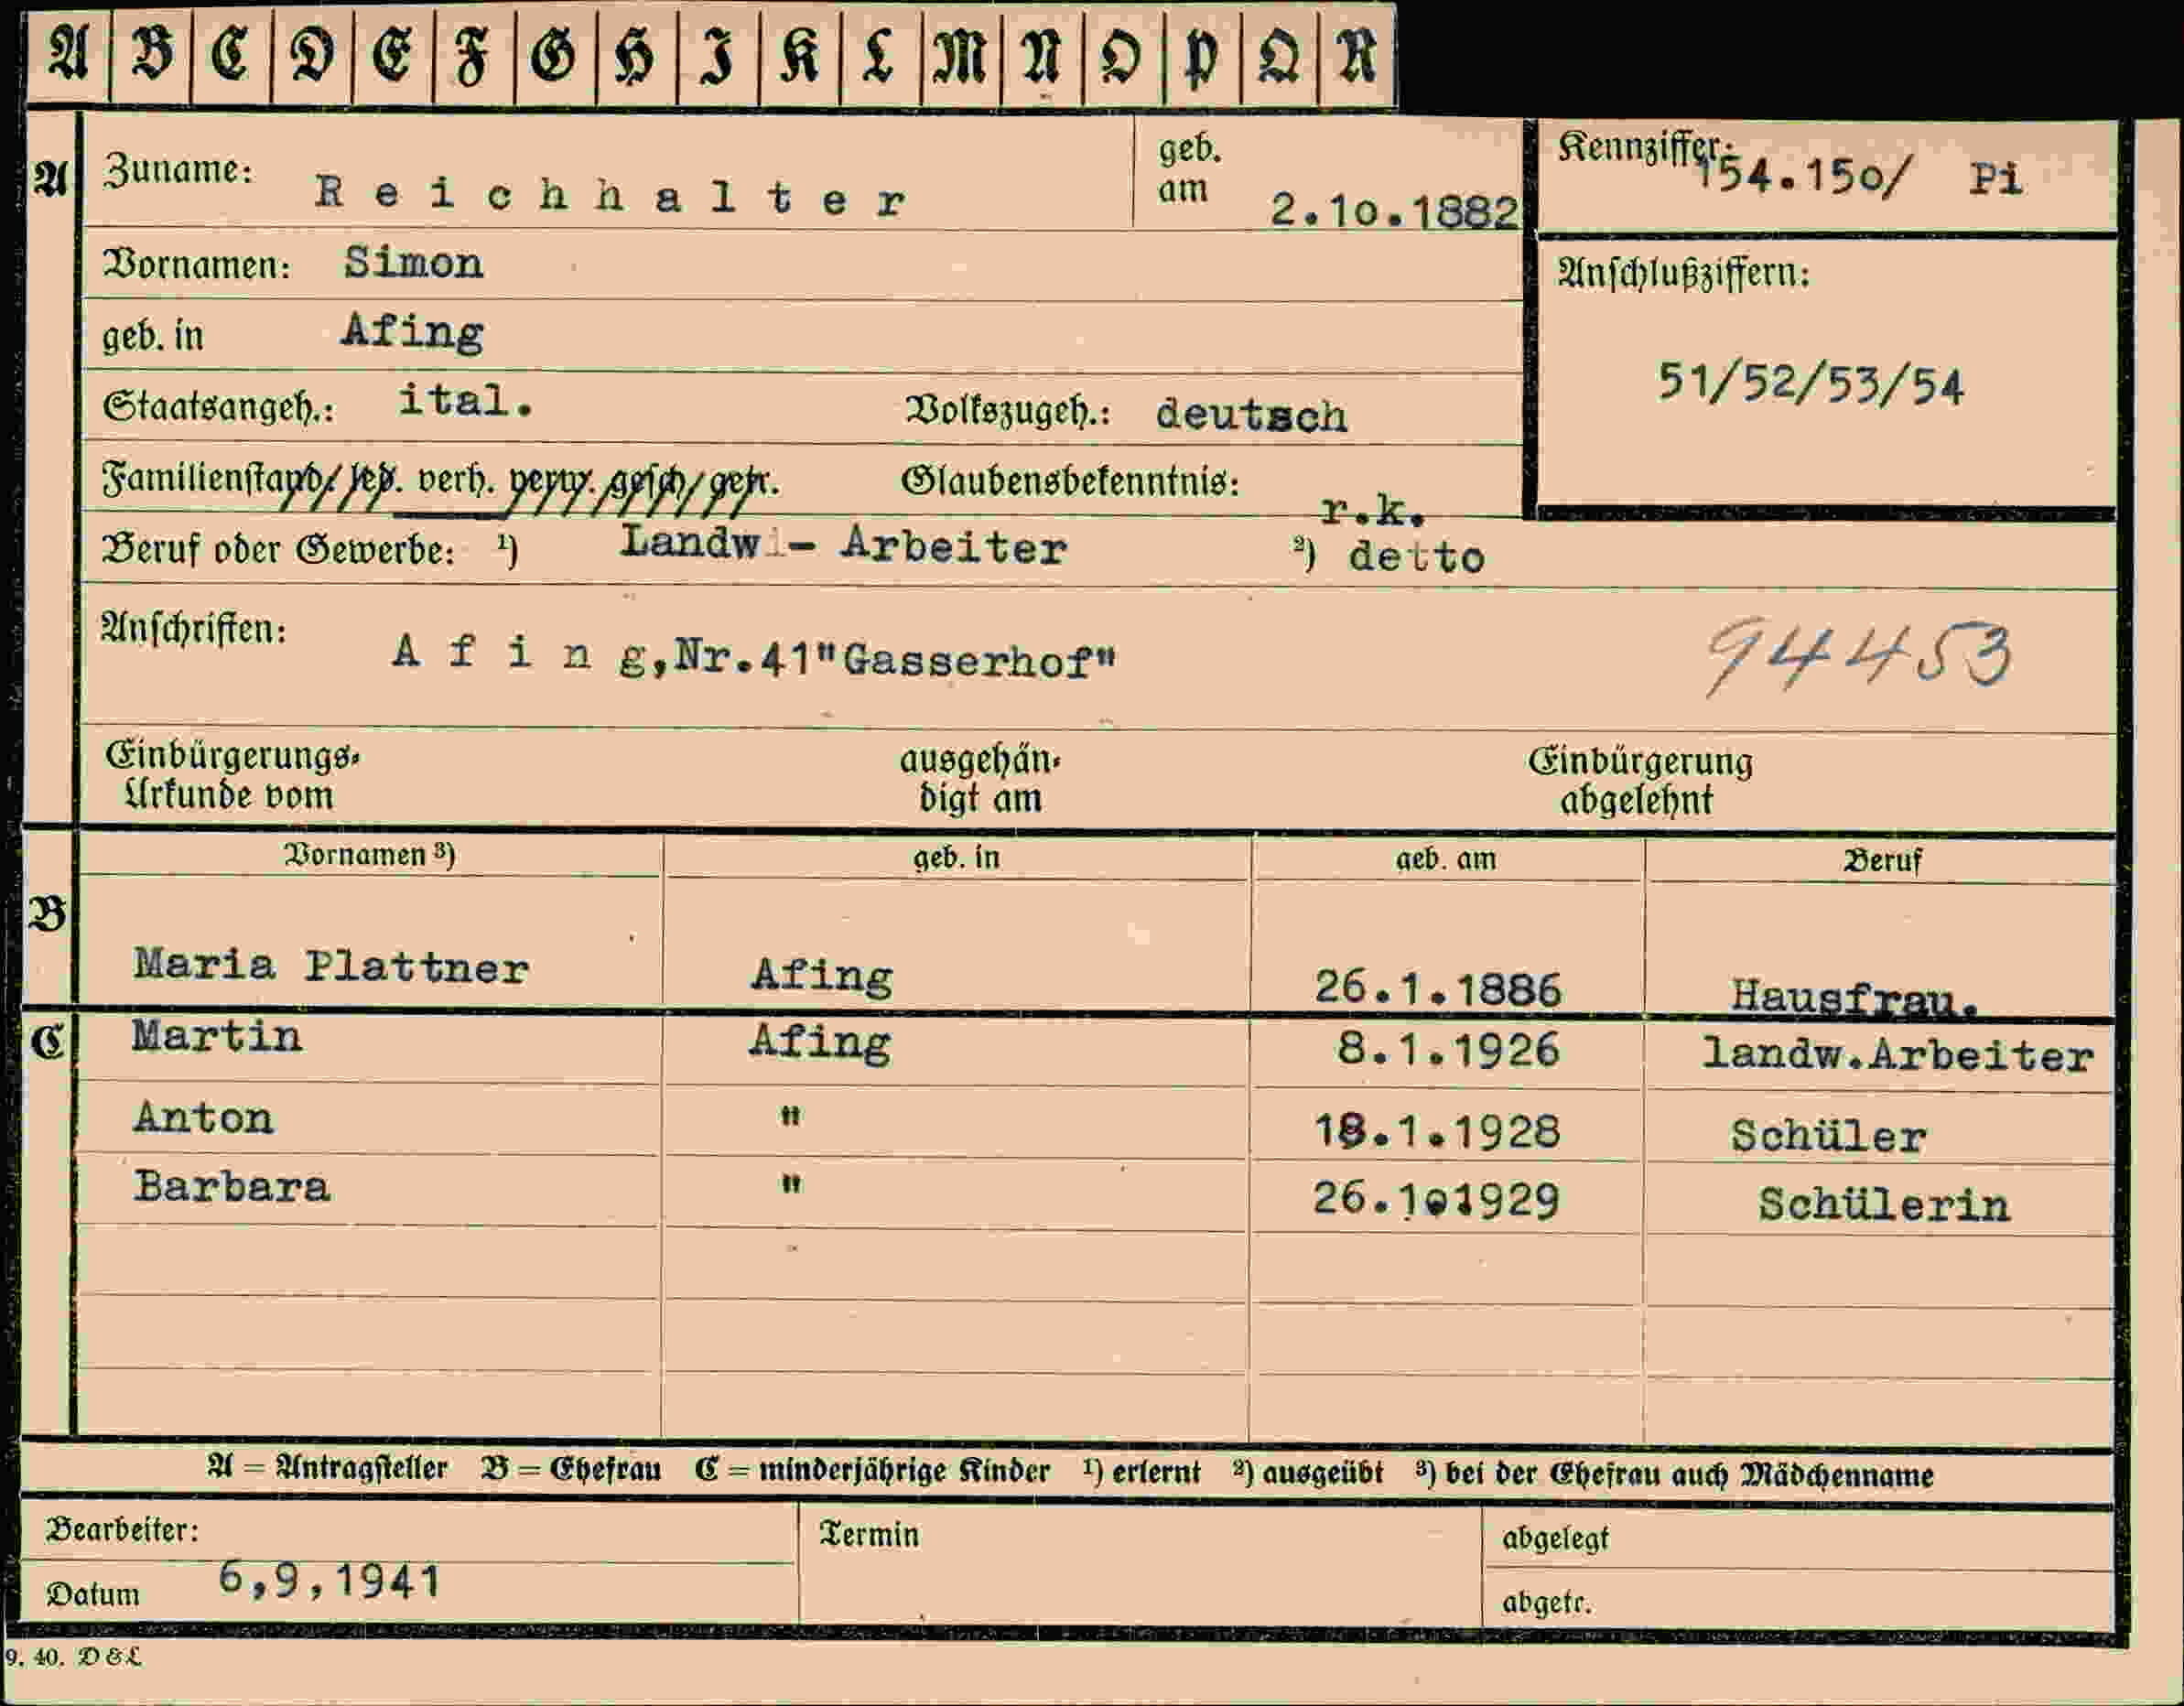 A B C D E F G H I K L M N O P Q R
A Zuname: Reichhalter geb. am 2.10.1882 Kennziffer: 154.15o/ Pi
Vornamen: Simon
Anschlußziffern:
geb. in Afing
51/52/53/54
Staatsangeh.: ital. Volkszugeh.: deutsch
Familienstand: led. verh. verw. gesch. getr. Glaubensbekenntnis: r.k.
Beruf oder Gewerbe: 1) Landw - Arbeiter 2) detto
Anschriften: Afing,Nr.41"Gasserhof" 94453
Einbürgerungs-
Urkunde vom
ausgehän-
digt am
Einbürgerung
abgelehnt
Vornamen 3) geb. in geb. am Beruf
B Maria Plattner Afing 26.1.1886 Hausfrau.
C Martin Afing 8.1.1926 landw.Arbeiter
Anton " 18.1.1928 Schüler
Barbara " 1929 Schülerin
A = Antragsteller B = Ehefrau C = minderjährige Kinder 1) erlernt 2) ausgeübt 3) bei der Ehefrau auch Mädchenname
Bearbeiter: Termin abgelegt
Datum 6,9,1941 abgetr.
9. 40. D&L